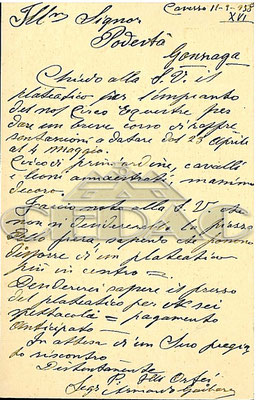 Cavezzo 11-3-938
XVI
Ill.mo Signor
Podestà
Gonzaga
Chiedo alla S.V. il
plateatico per l'impianto
del nos/ Circo Equestre per
dare un breve corso di rappre
sentazioni a datare dal 25 Aprile
al 4 Maggio.
Circo di prim'ordine, cavalli
e leoni ammaestrati, massimo
decoro.
Faccio noto alla S.V. che
non si desidererebbe la piazza
della fiera, sapendo che possono
disporre di un plateatico
più in centro =
Desidererei sapere il prezzo
del plateatico per sei
spettacoli = pagamento
anticipato =
In attesa di un Suo pregia
to riscontro
Distintamente
P. F.lli Orfei
Segr. Armando
CEDAC